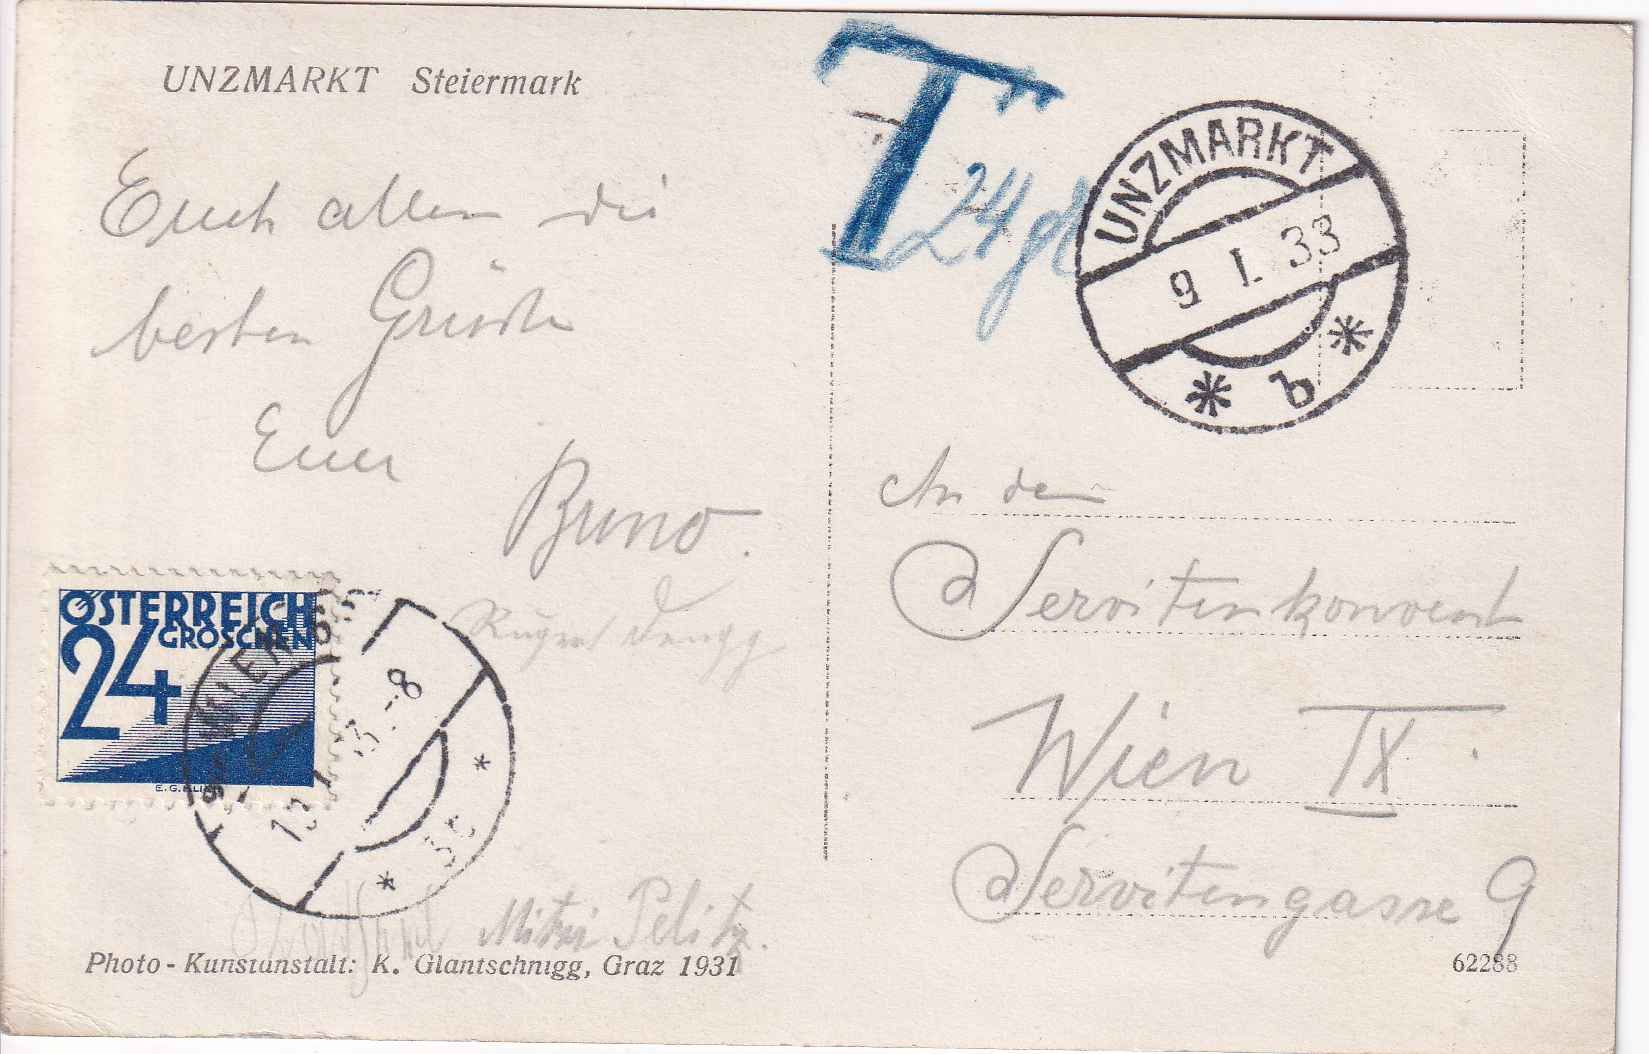 UNZMARKT Steiermark
T 24 g
UNZMARKT
9 I. 33
* b *
Euch allen die
besten Grüße
Euer
Bruno.
ÖSTERREICH
GROSCHEN
24
WIEN
13. I. 3 -8
* *
Mitzi Pelitz.
Photo-Kunstanstalt: K. Glantschnigg, Graz 1931
An den
Servitenkonvent
Wien IX.
Servitengasse 9
62288